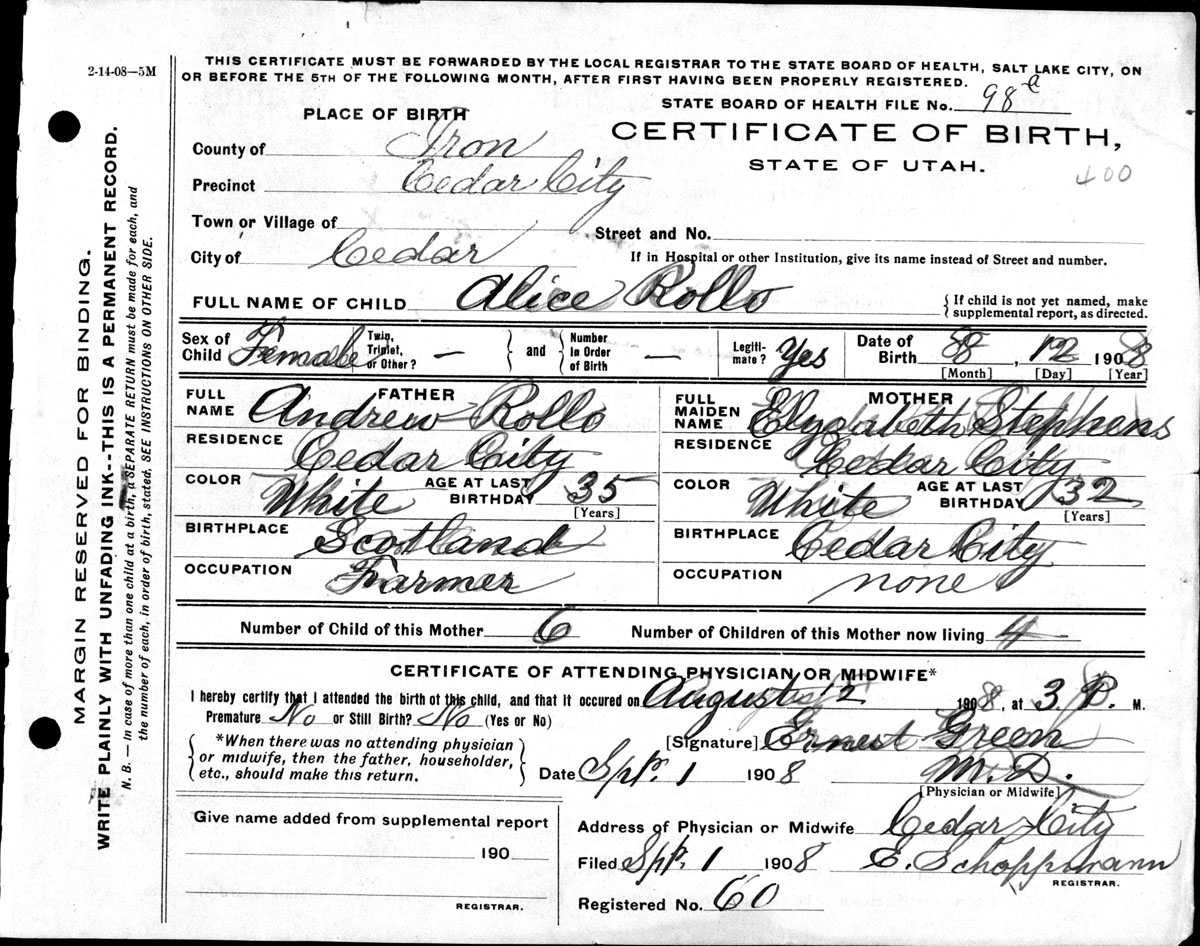 2-14-08—5M
THIS CERTIFICATE MUST BE FORWARDED BY THE LOCAL REGISTRAR TO THE STATE BOARD OF HEALTH, SALT LAKE CITY, ON
OR BEFORE THE 5TH OF THE FOLLOWING MONTH, AFTER FIRST HAVING BEEN PROPERLY REGISTERED.
STATE BOARD OF HEALTH FILE No. 98
PLACE OF BIRTH
CERTIFICATE OF BIRTH,
STATE OF UTAH.
400
County of Iron
Precinct Cedar City
Town or Village of
Street and No.
City of Cedar
If in Hospital or other Institution, give its name instead of Street and number.
FULL NAME OF CHILD Alice Rollo
{ If child is not yet named, make
supplemental report, as directed.
Sex of Child Female
Twin, Triplet, or Other? —
} and {
Number In Order of Birth —
Legiti-mate? Yes
Date of Birth 8, 12 1908
[Month] [Day] [Year]
FATHER
FULL NAME Andrew Rollo
RESIDENCE Cedar City
COLOR White AGE AT LAST BIRTHDAY 35
[Years]
BIRTHPLACE Scotland
OCCUPATION Farmer
MOTHER
FULL MAIDEN NAME Elyzabeth Stephens
RESIDENCE Cedar City
COLOR White AGE AT LAST BIRTHDAY 32
[Years]
BIRTHPLACE Cedar City
OCCUPATION none
Number of Child of this Mother 6 Number of Children of this Mother now living 4
CERTIFICATE OF ATTENDING PHYSICIAN OR MIDWIFE*
I hereby certify that I attended the birth of this child, and that it occured on August 12 1908, at 3 P. M.
Premature No or Still Birth? No (Yes or No)
{ *When there was no attending physician
or midwife, then the father, householder,
etc., should make this return. }
[Signature] Ernest Green
Date Sept. 1 1908 M.D.
[Physician or Midwife]
Give name added from supplemental report
190
REGISTRAR.
Address of Physician or Midwife Cedar City
Filed Sept. 1 1908 E. Schoppmann
REGISTRAR.
Registered No. 60
MARGIN RESERVED FOR BINDING.
WRITE PLAINLY WITH UNFADING INK---THIS IS A PERMANENT RECORD.
N. B.—In case of more than one child at a birth, a SEPARATE RETURN must be made for each, and
the number of each, in order of birth, stated. SEE INSTRUCTIONS ON OTHER SIDE.